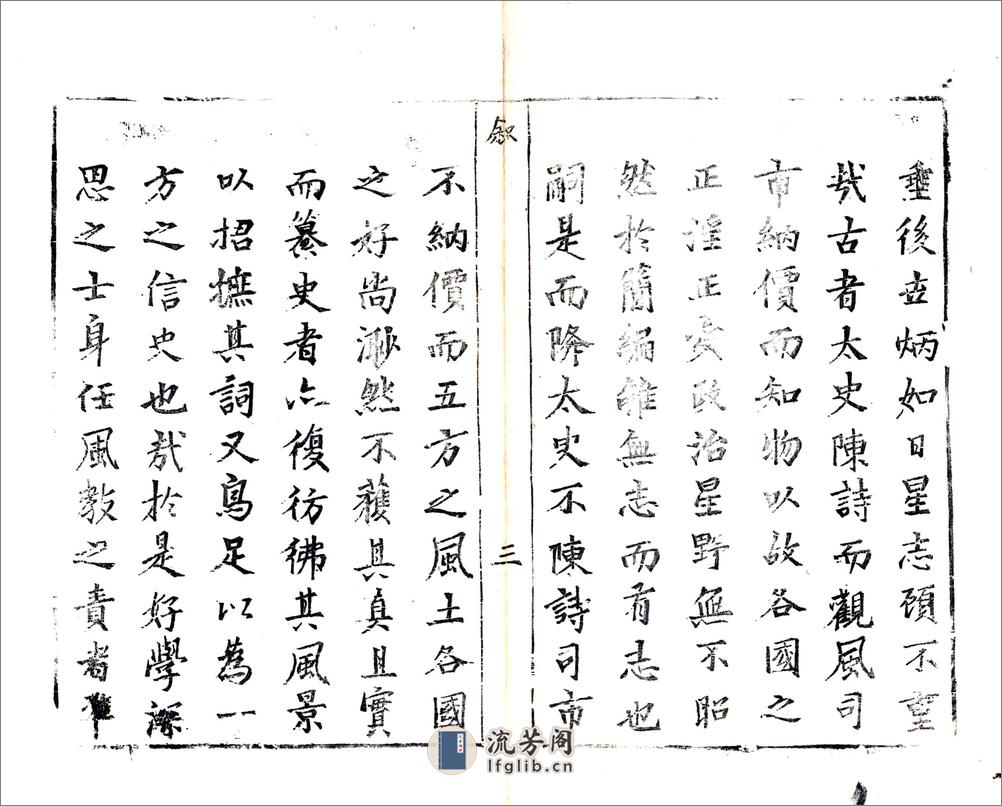 垂後世炳如日星志顧不重
哉古者太史陳詩而觀風司
市納價而知物以故各國之
正淫正变政治星野無不昭
然於簡編雖無志而有志也
嗣是而降太史不陳詩司市
敘
三
不納價而五方之風土各國
之好尚渺然不獲其真且實
而纂史者亦復彷彿其風景
以招摭其詞又烏足以為一
方之信史也哉於是好學深
思之士身任風教之責者本
流芳阁
lfglib.cn